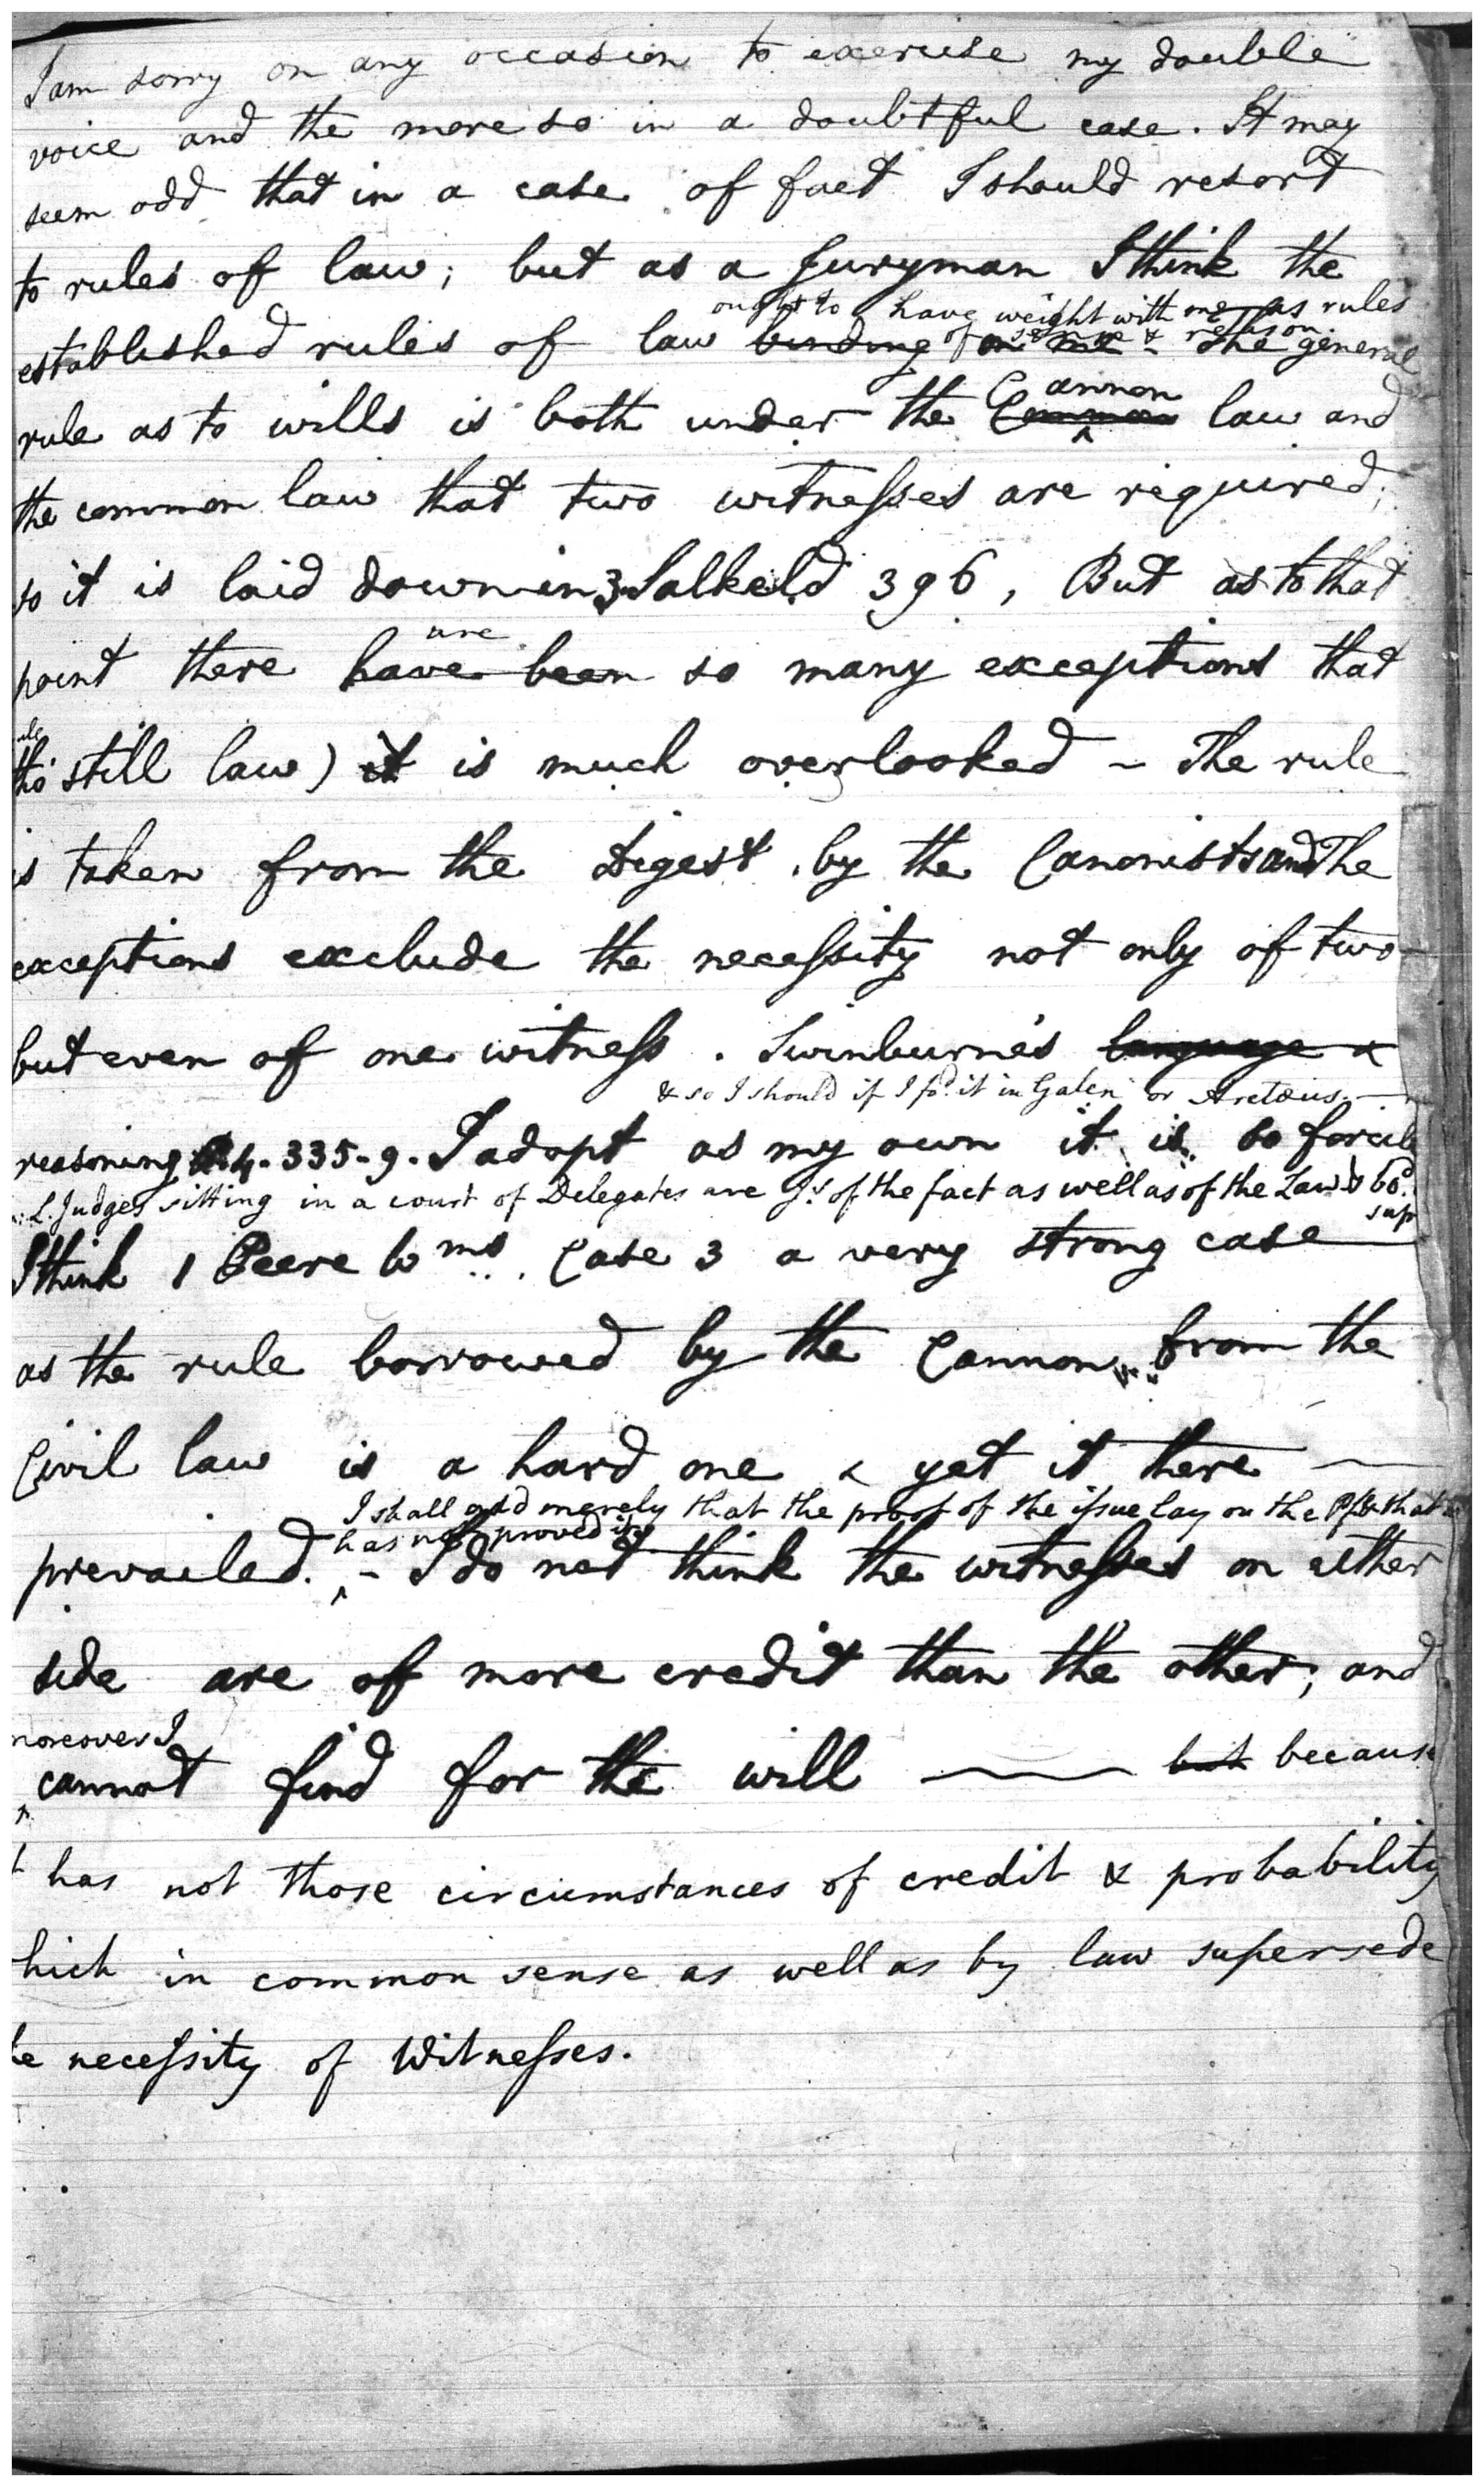 I am sorry on any occasion to exercise my double
voice and the more so in a doubtful case. It may
seem odd that in a case of fact I should resort
to rules of law; but as a Juryman I think the
ought to have weight with me as rules
established rules of law binding on me of sense & reason. The general
annon
rule as to wills is both under the Common law and
the common law that two witnesses are required;
so it is laid down in 3 Salkeld 396, But as to that
are
point there have been so many exceptions that
tho' still law) it is much overlooked ~ The rule
is taken from the Digest by the Canonists and The
exceptions exclude the necessity not only of two
but even of one witness. Swinburne's language &
& so I should if I fd. it in Galen or Aretæus.
reasoning P 4. 335-9. I adopt as my own it is so forcible
L. Judges sitting in a court of Delegates are Js. of the fact as well as of the Law
I think 1 Peere Wms. Case 3 a very strong case
as the rule borrowed by the Cannon from the
Civil law is a hard one & yet it there
I shall add merely that the proof of the issue lay on the Pf & that
has not proved it
prevailed. - I do not think the witnesses on either
side are of more credit than the other; and
moreover I
cannot find for the will —— but because
has not those circumstances of credit & probability
hich in common sense as well as by law supersede
he necessity of Witnesses.